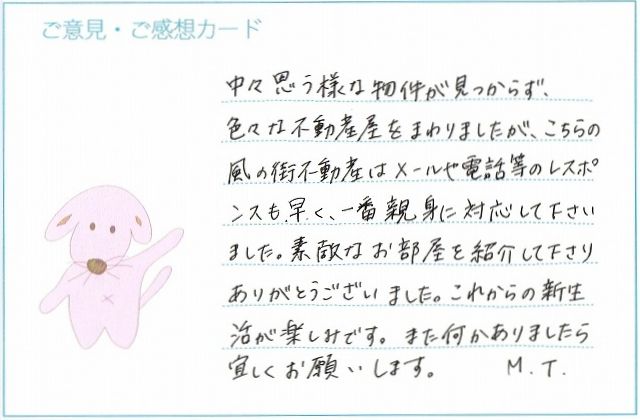 ご意見・ご感想カード
中々思う様な物件が見つからず、
色々な不動産屋をまわりましたが、こちらの
風の街不動産はメールや電話等のレスポ
ンスも早く、一番親身に対応して下さい
ました。素敵なお部屋を紹介して下さり
ありがとうございました。これからの新生
活が楽しみです。また何かありましたら
宜しくお願いします。 M.T.